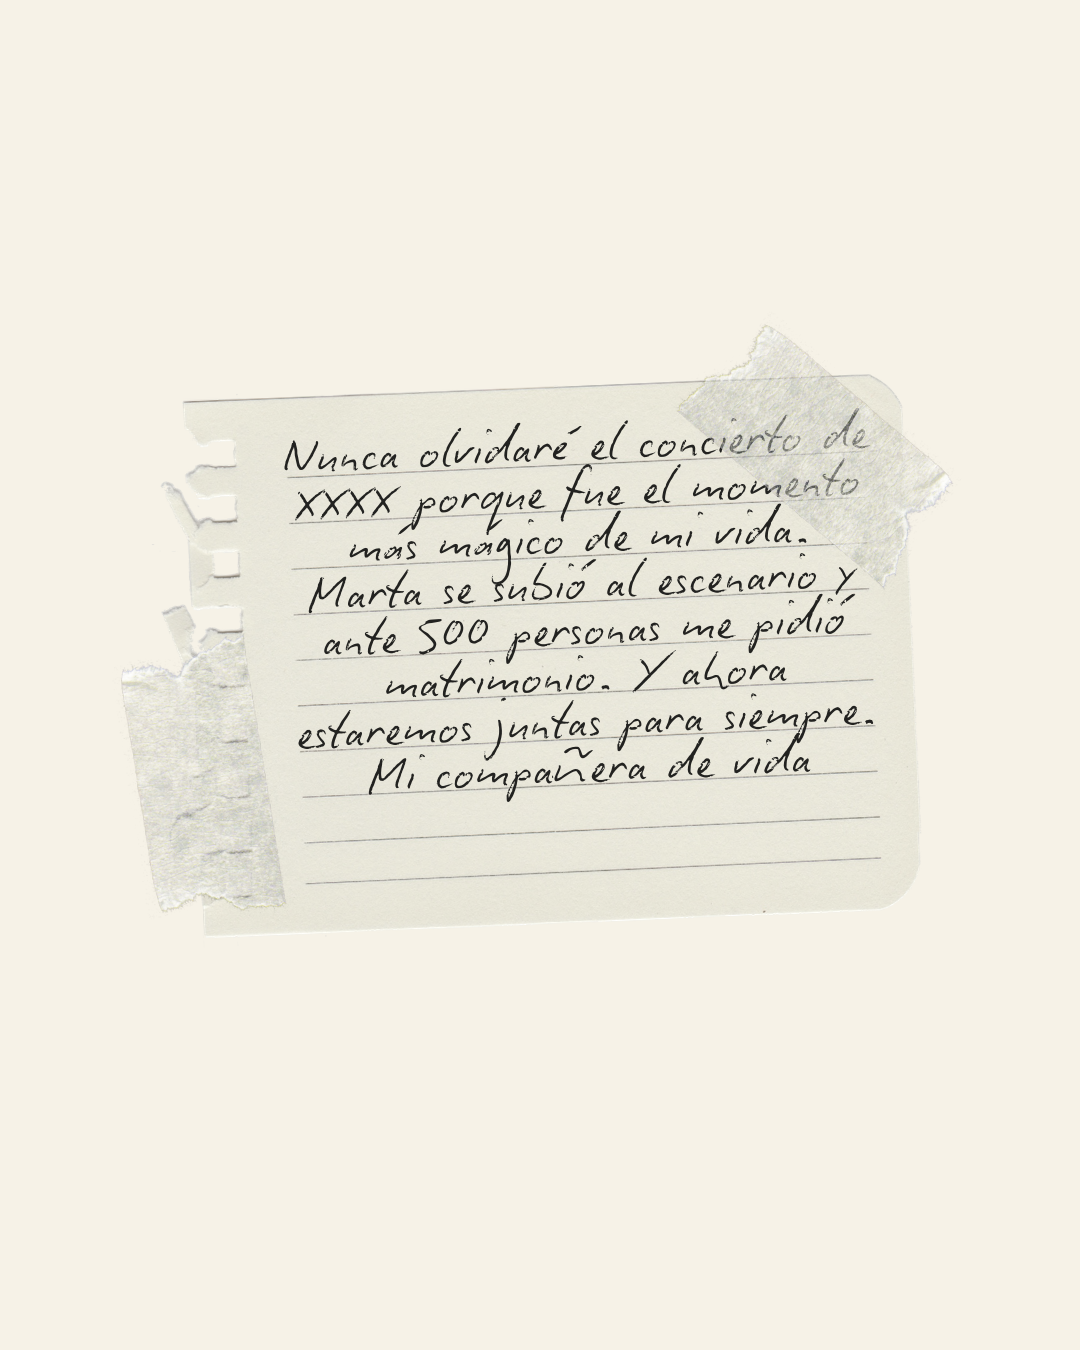 Nunca olvidaré el concierto de
XXXX porque fue el momento
más mágico de mi vida.
Marta se subió al escenario y
ante 500 personas me pidió
matrimonio. Y ahora
estaremos juntas para siempre.
Mi compañera de vida